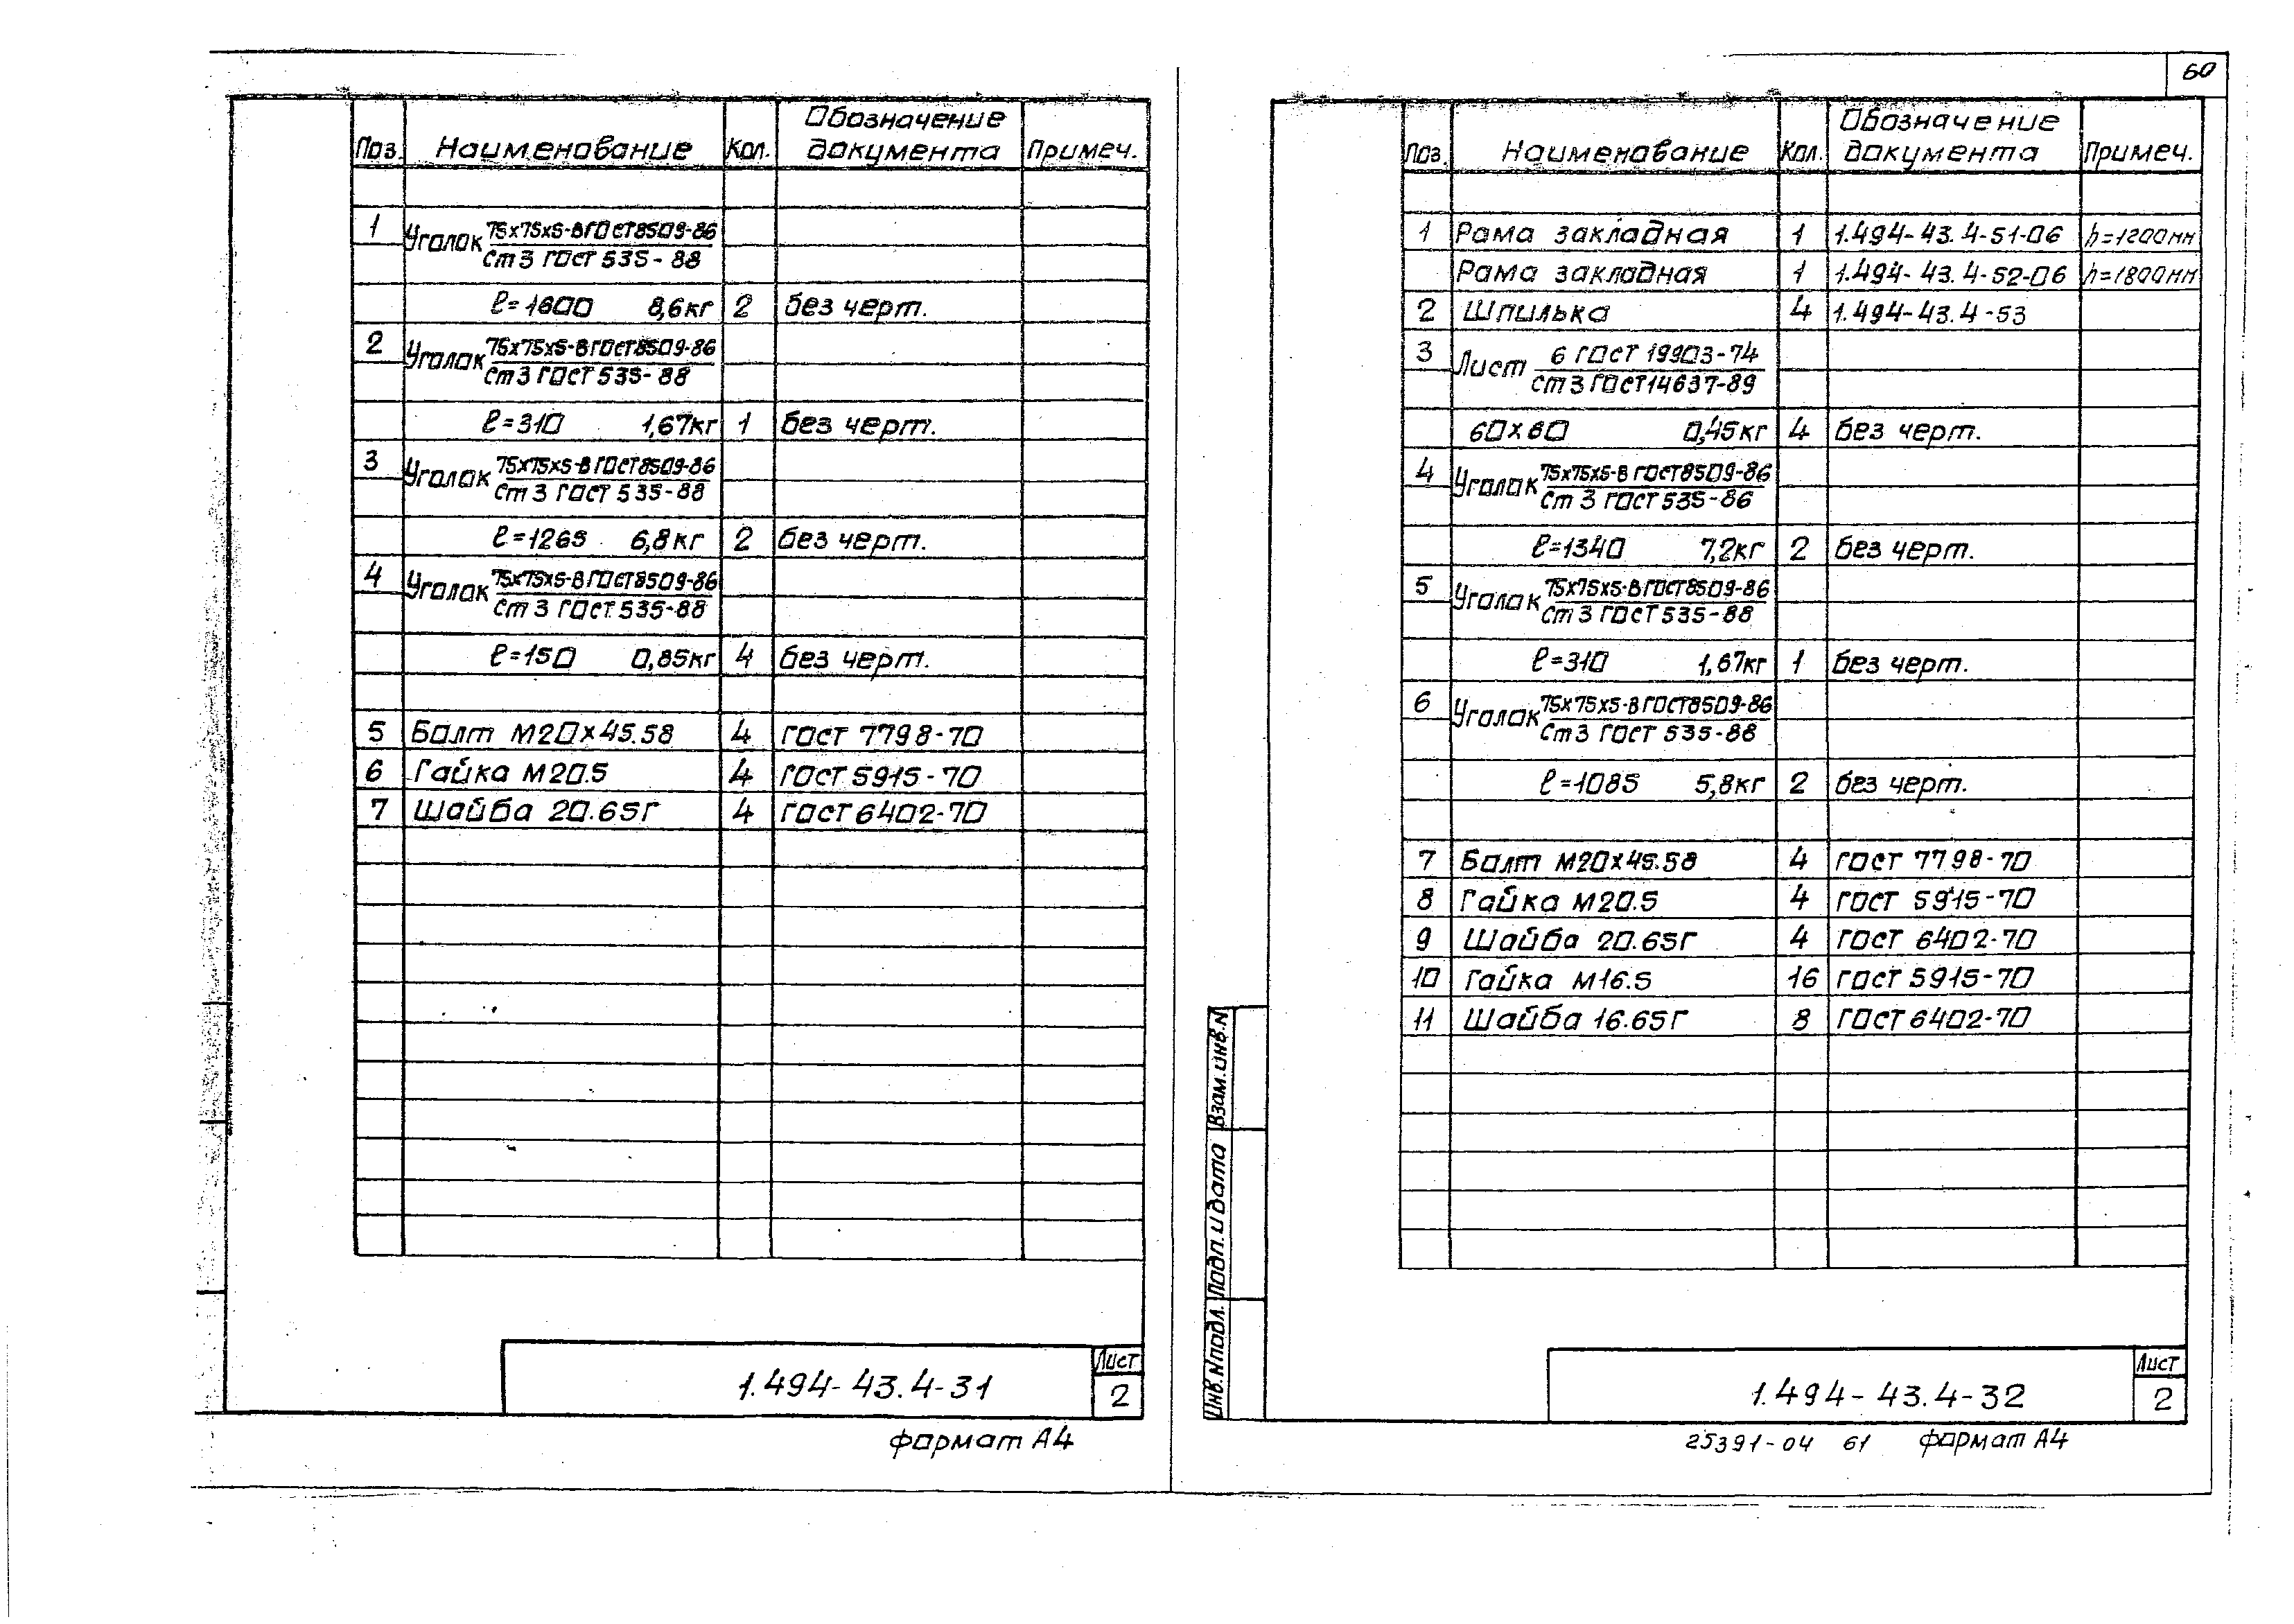 60
Поз. Наименование Кол. Обозначение документа Примеч.
1 Уголок 75х75х5-В ГОСТ 8509-86
Ст3 ГОСТ 535-88
ℓ=1600 8,6кг 2 без черт.
2 Уголок 75х75х5-В ГОСТ 8509-86
Ст3 ГОСТ 535-88
ℓ=310 1,67кг 1 без черт.
3 Уголок 75х75х5-В ГОСТ 8509-86
Ст3 ГОСТ 535-88
ℓ=1265 6,8кг 2 без черт.
4 Уголок 75х75х5-В ГОСТ 8509-86
Ст3 ГОСТ 535-88
ℓ=150 0,85кг 4 без черт.
5 Болт М20х45.58 4 ГОСТ 7798-70
6 Гайка М20.5 4 ГОСТ 5915-70
7 Шайба 20.65Г 4 ГОСТ 6402-70
1.494-43.4-31
Лист
2
формат А4
Поз. Наименование Кол. Обозначение документа Примеч.
1 Рама закладная 1 1.494-43.4-51-06 h=1200мм
Рама закладная 1 1.494-43.4-52-06 h=1800мм
2 Шпилька 4 1.494-43.4-53
3 Лист 6 ГОСТ 19903-74
Ст3 ГОСТ 14637-89
60х60 0,45кг 4 без черт.
4 Уголок 75х75х5-В ГОСТ 8509-86
Ст3 ГОСТ 535-86
ℓ=1340 7,2кг 2 без черт.
5 Уголок 75х75х5-В ГОСТ 8509-86
Ст3 ГОСТ 535-88
ℓ=310 1,67кг 1 без черт.
6 Уголок 75х75х5-В ГОСТ 8509-86
Ст3 ГОСТ 535-88
ℓ=1085 5,8кг 2 без черт.
7 Болт М20х45.58 4 ГОСТ 7798-70
8 Гайка М20.5 4 ГОСТ 5915-70
9 Шайба 20.65Г 4 ГОСТ 6402-70
10 Гайка М16.5 16 ГОСТ 5915-70
11 Шайба 16.65Г 8 ГОСТ 6402-70
Взам.инв.N
Подп. и дата
Инв.Nподл.
1.494-43.4-32
Лист
2
25391-04 61 формат А4